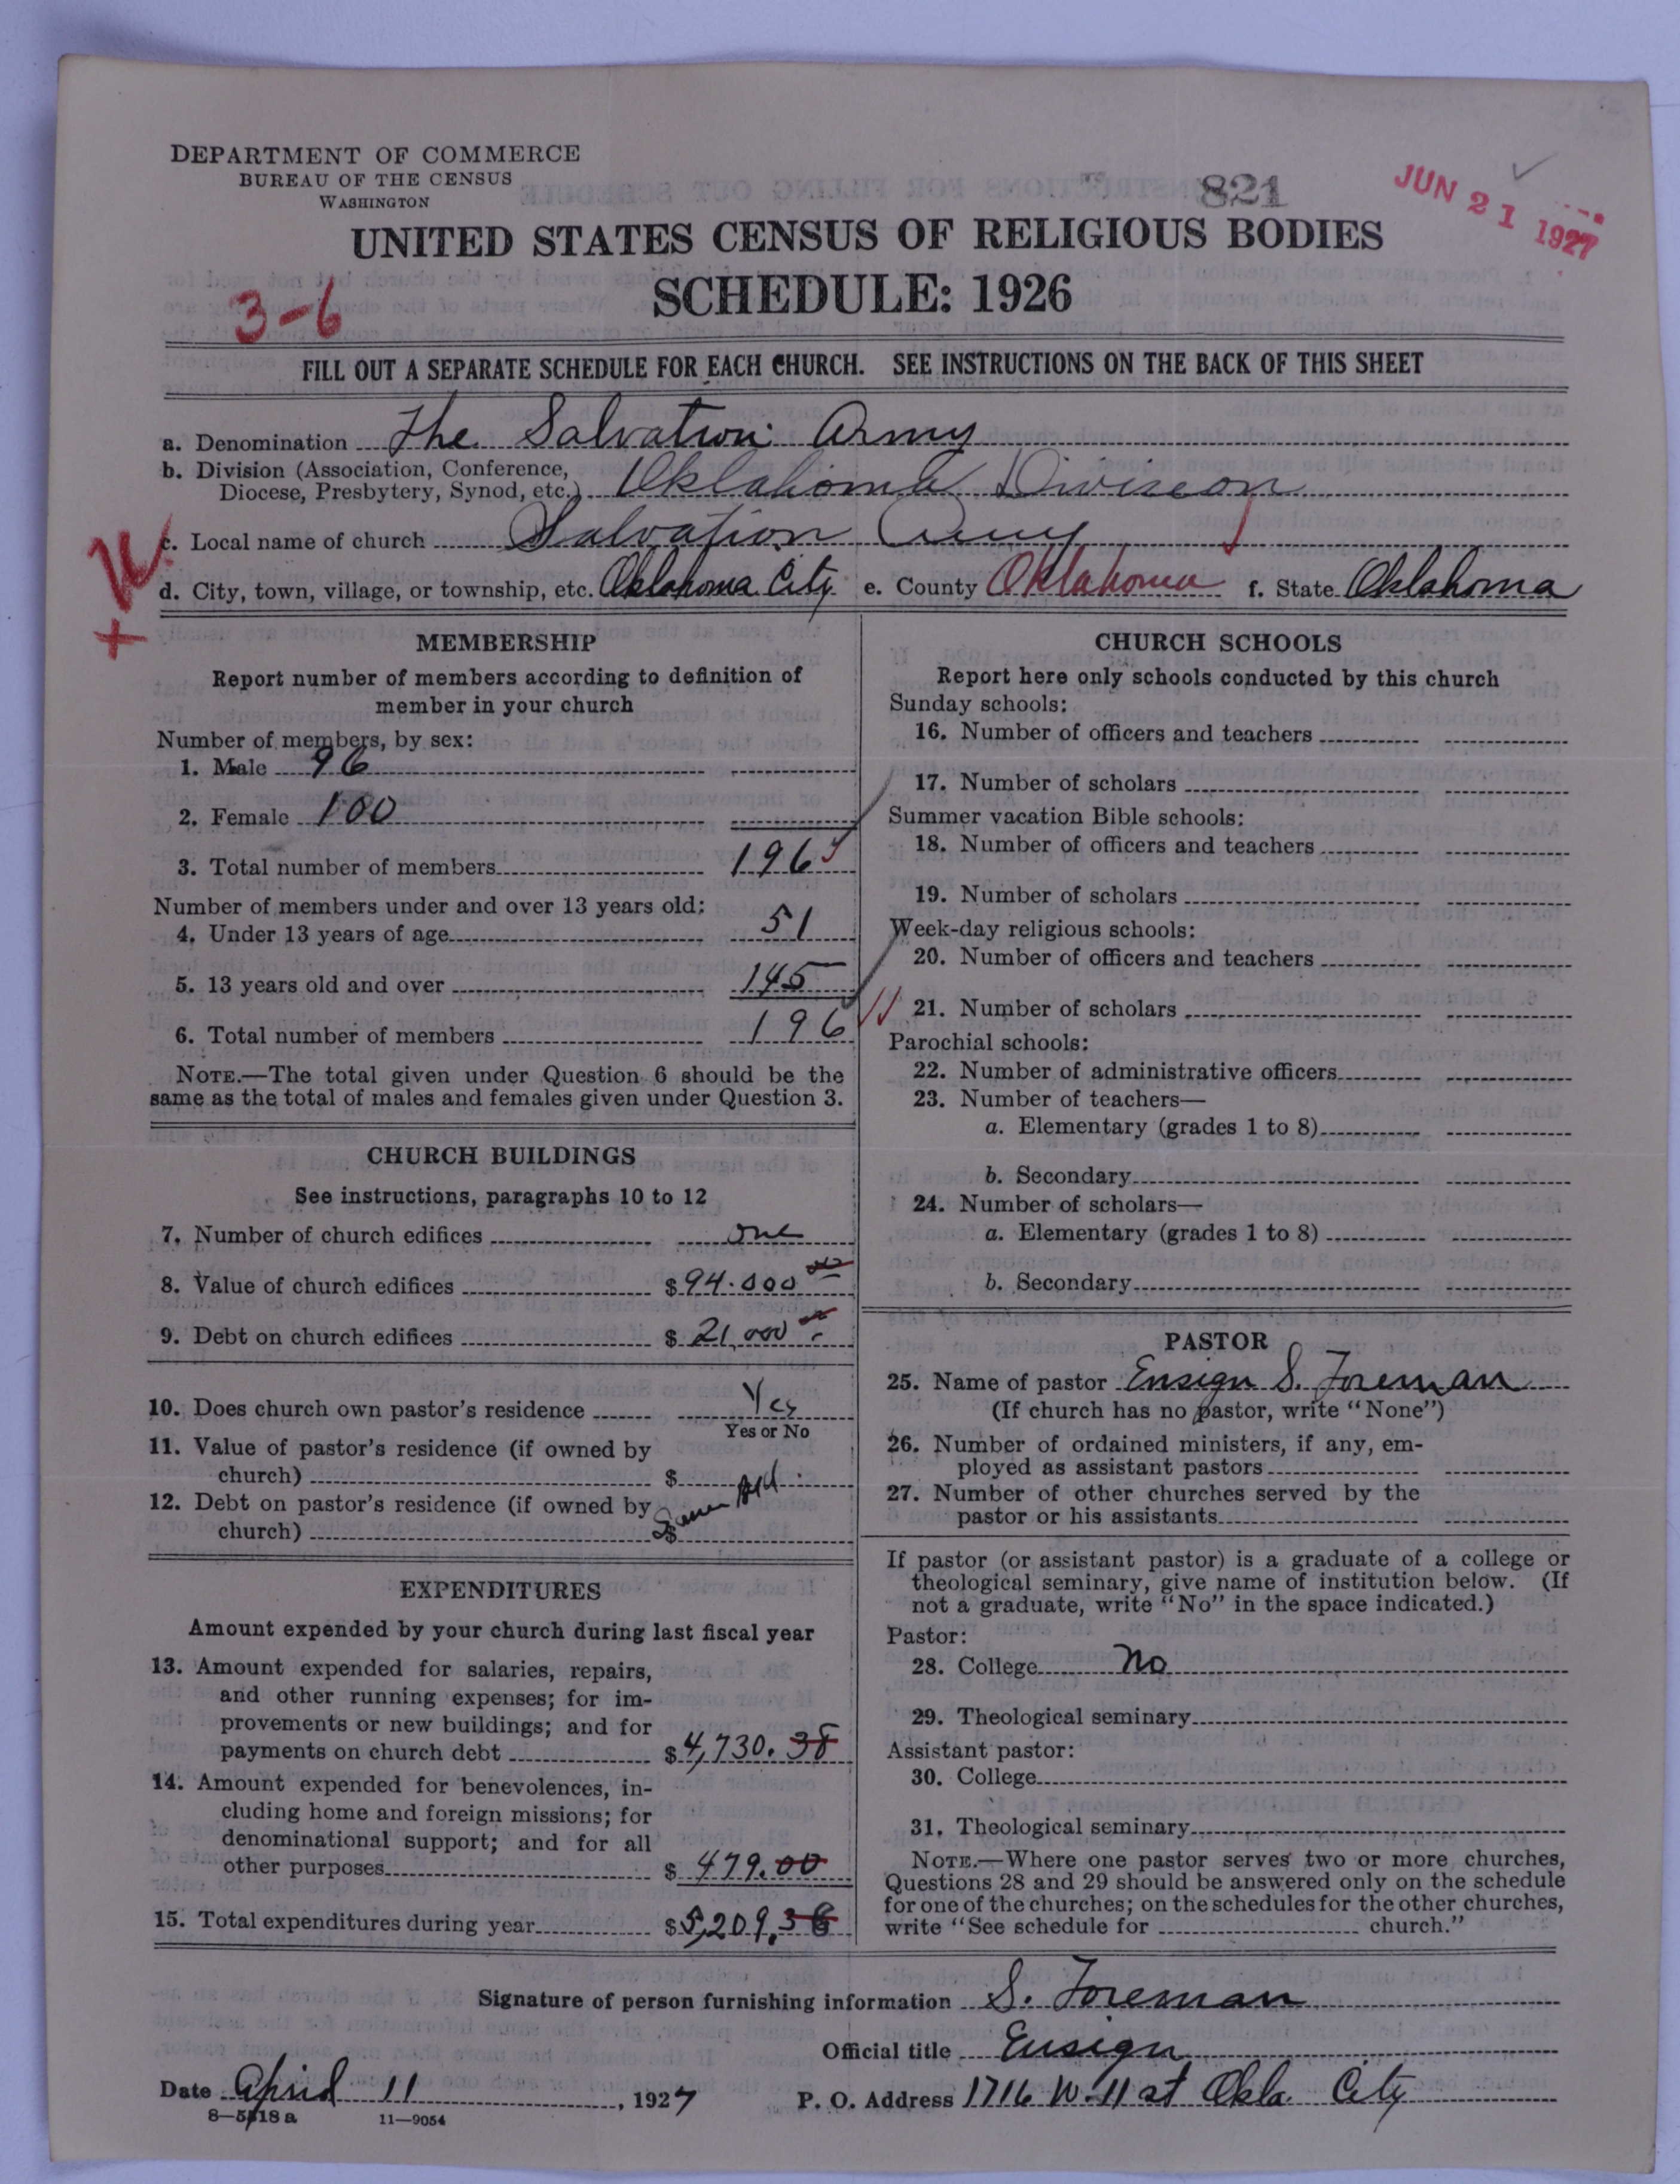 DEPARTMENT OF COMMERCE
BUREAU OF THE CENSUS
WASHINGTON
821
JUN 21 1927
UNITED STATES CENSUS OF RELIGIOUS BODIES
SCHEDULE: 1926
3-6
FILL OUT A SEPARATE SCHEDULE FOR EACH CHURCH. SEE INSTRUCTIONS ON THE BACK OF THIS SHEET
a. Denomination The Salvation Army
b. Division (Association, Conference,
Diocese, Presbytery, Synod, etc.) Oklahoma Division
c. Local name of church Salvation Army
d. City, town, village, or township, etc. Oklahoma City e. County Oklahoma f. State Oklahoma
MEMBERSHIP
Report number of members according to definition of
member in your church
Number of members, by sex:
1. Male 96
2. Female 100
3. Total number of members 196
Number of members under and over 13 years old:
4. Under 13 years of age 51
5. 13 years old and over 145
6. Total number of members 196
NOTE.—The total given under Question 6 should be the
same as the total of males and females given under Question 3.
CHURCH BUILDINGS
See instructions, paragraphs 10 to 12
7. Number of church edifices one
8. Value of church edifices $94.000 00
9. Debt on church edifices $21,000
10. Does church own pastor's residence Yes
Yes or No
11. Value of pastor's residence (if owned by
church) $
12. Debt on pastor's residence (if owned by
church) $
EXPENDITURES
Amount expended by your church during last fiscal year
13. Amount expended for salaries, repairs,
and other running expenses; for im-
provements or new buildings; and for
payments on church debt $4,730.38
14. Amount expended for benevolences, in-
cluding home and foreign missions; for
denominational support; and for all
other purposes $479.00
15. Total expenditures during year $5,209.38
CHURCH SCHOOLS
Report here only schools conducted by this church
Sunday schools:
16. Number of officers and teachers
17. Number of scholars
Summer vacation Bible schools:
18. Number of officers and teachers
19. Number of scholars
Week-day religious schools:
20. Number of officers and teachers
21. Number of scholars
Parochial schools:
22. Number of administrative officers
23. Number of teachers—
a. Elementary (grades 1 to 8)
b. Secondary
24. Number of scholars—
a. Elementary (grades 1 to 8)
b. Secondary
PASTOR
25. Name of pastor Ensign S. Foreman
(If church has no pastor, write "None")
26. Number of ordained ministers, if any, em-
ployed as assistant pastors
27. Number of other churches served by the
pastor or his assistants
If pastor (or assistant pastor) is a graduate of a college or
theological seminary, give name of institution below. (If
not a graduate, write "No" in the space indicated.)
Pastor:
28. College No
29. Theological seminary
Assistant pastor:
30. College
31. Theological seminary
NOTE.—Where one pastor serves two or more churches,
Questions 28 and 29 should be answered only on the schedule
for one of the churches; on the schedules for the other churches,
write "See schedule for church."
Signature of person furnishing information S. Foreman
Official title Ensign
Date April 11, 1927 P. O. Address 1716 W. 11 st Okla. City
8—5518 a 11—9054